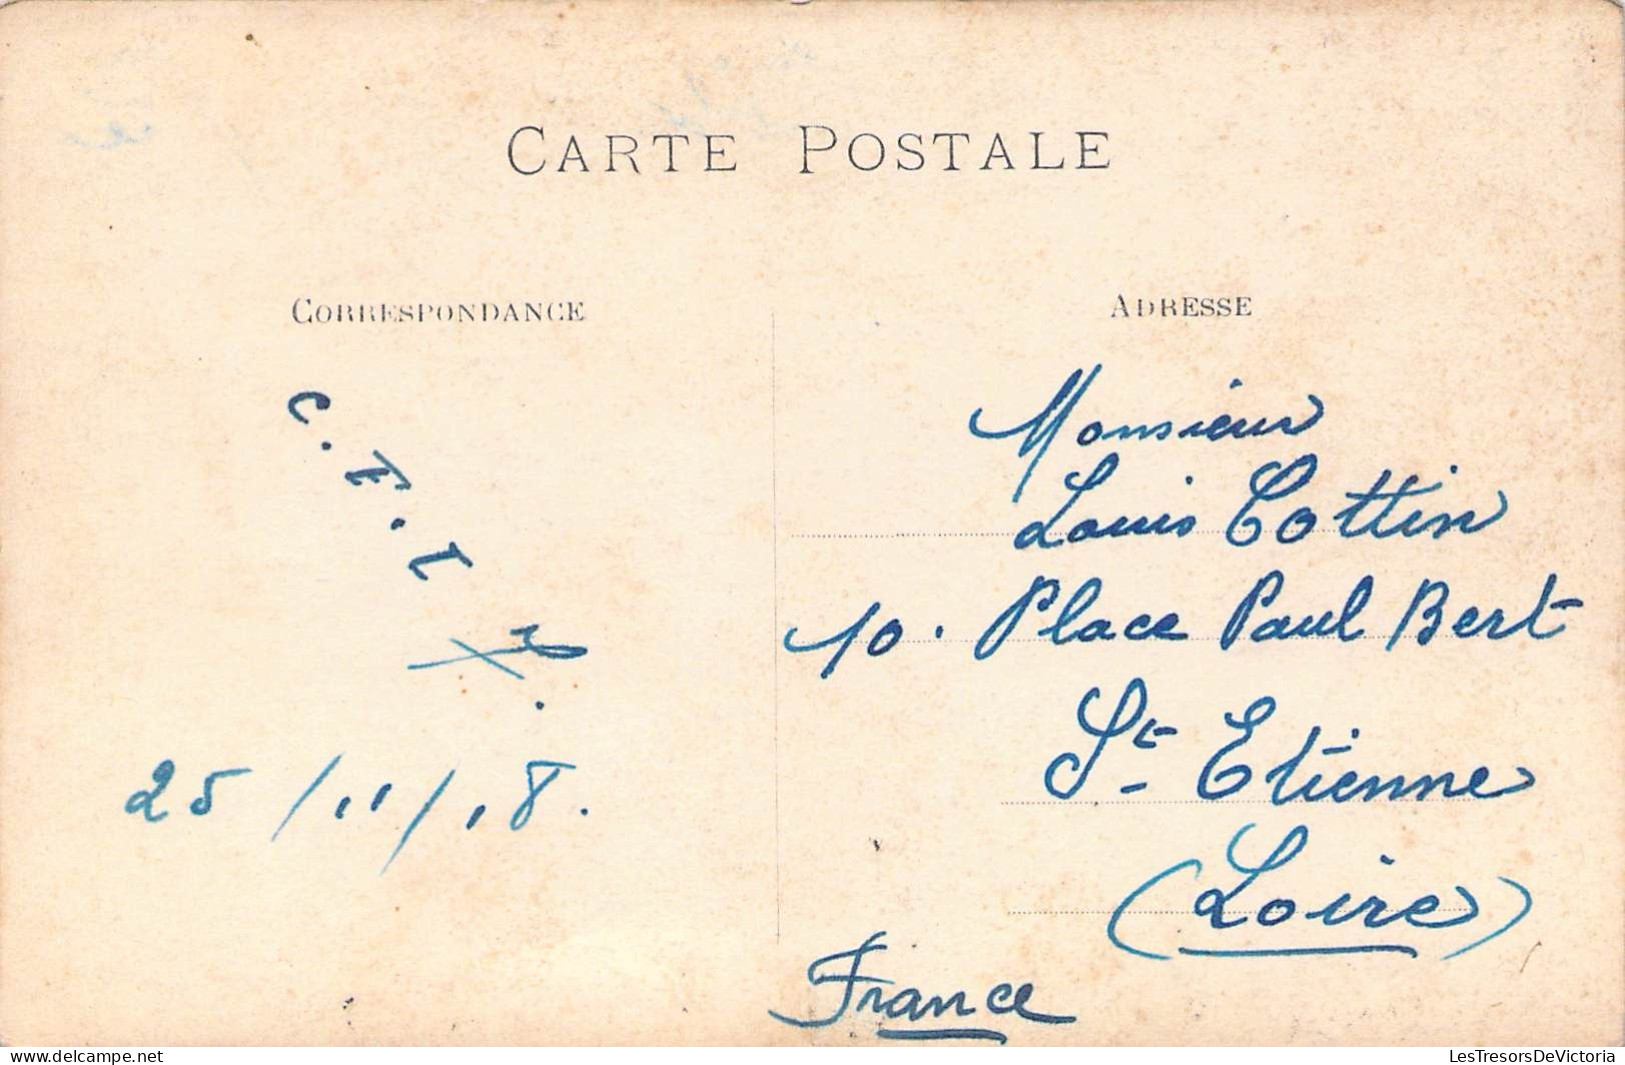 CARTE POSTALE
CORRESPONDANCE
C. F. L
25/11/18.
ADRESSE
Monsieur
Louis Cottin
10. Place Paul Bert
St- Etienne
(Loire)
France
delcampe.net
LesTresorsDeVictoria